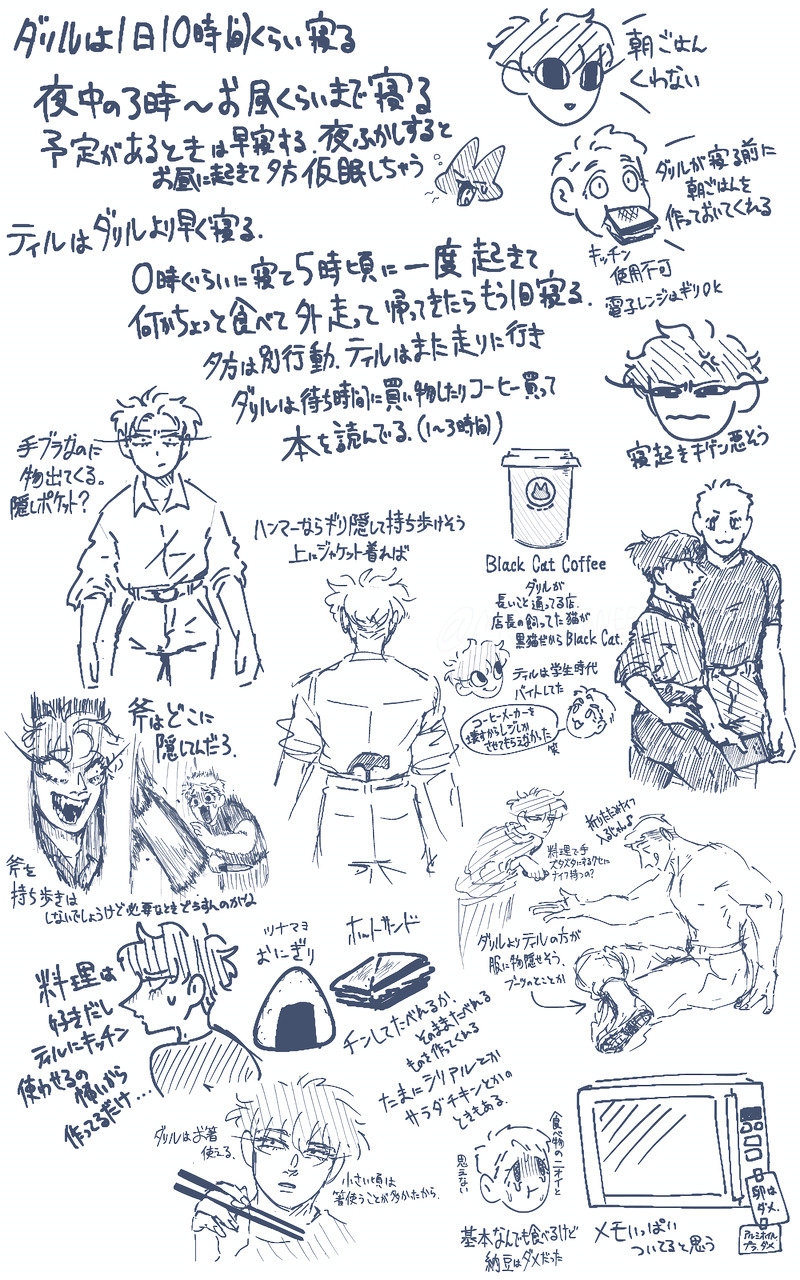 ダリルは1日10時間くらい寝る
夜中の3時〜お昼くらいまで寝る
予定があるときは早寝する。夜ふかしすると
お昼に起きて夕方仮眠しちゃう
朝ごはん
くわない
ダリルが寝る前に
朝ごはんを
作っておいてくれる
キッチン
使用不可
電子レンジはギリOK
ティルはダリルより早く寝る。
0時ぐらいに寝て5時頃に一度起きて
何かちょっと食べて外走って帰ってきたらもう1回寝る。
夕方は別行動。ティルはまた走りに行き
ダリルは待ち時間に買い物したりコーヒー買って
本を読んでる。(1〜3時間)
寝起きキゲン悪そう
手ブラなのに
物出てくる。
隠しポケット?
ハンマーならギリ隠して持ち歩けそう
上にジャケット着れば
Black Cat Coffee
ダリルが
長いこと通ってる店。
店長の飼ってた猫が
黒猫だからBlack Cat.
ティルは学生時代
バイトしてた
コーヒーメーカーを
壊すからレジしか
させてもらえなかった
斧はどこに
隠してんだろ。
斧を
持ち歩きは
しないでしょうけど必要なときどうすんのかな
料理で手
ズタズタにするクセに
ナイフ持つの?
折りたたみナイフ
入るじゃん♪
ダリルよりティルの方が
服に物隠せそう。
ブーツのとことか
料理は
好きだし
ティルにキッチン
使わせるの
怖いから
作ってるだけ…
ツナマヨ
おにぎり
ホットサンド
チンしてたべれるか、
そのままたべれる
ものを作ってくれる
たまにシリアルとか
サラダチキンとかの
ときもある。
ダリルはお箸
使える。
小さい頃は
箸使うことが多かったから。
食べ物のニオイと
思えない
基本なんでも食べるけど
納豆はダメだった
卵は
ダメ。
アルミホイル
プラ、ダメ
メモいっぱい
ついてると思う